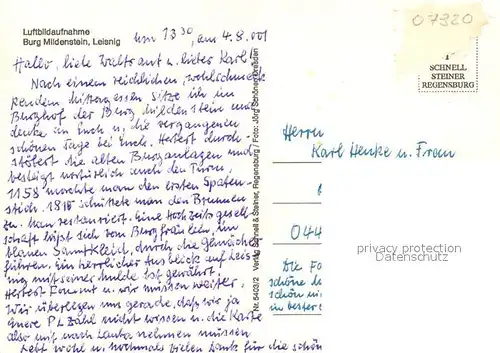 Luftbildaufnahme
Burg Mildenstein, Leisnig
um 13 30, am 4.8.001
Hallo, liebe Waltraut u. lieber Karl!
Nach einem reichlichen, wohlschmek-
kenden Mittagessen sitze ich im
Burghof der Burg Mildenstein und
denke an Euch u. die vergangenen
schönen Tage bei Euch. Herbert durch-
stöfert die alten Burganlagen und
besteigt natürlich auch den Turm.
1158 machte man den ersten Spaten-
stich. 1815 schüttete man den Brunnen
zu. Man restauriert. Eine Hochzeitsgesell-
schaft läßt sich vom Burgfräulein, im
blauen Samtkleid, durch die Gemächer
führen. Ein herrlicher Ausblick auf Leis-
nig mit seiner Mulde ist gewährt.
Herbert kommt u. wir müssen weiter.
Wir überlegen uns gerade, daß wir ja
Ihre PLZahl nicht wissen u. die Karte
also mit nach Lauka nehmen müssen
Lebt wohl u. nochmals vielen Dank für die schön
Nr. 5403/2 Verlag Schnell & Steiner, Regensburg / Foto: Jörg Schöner, Dresden
07320
1
SCHNELL
STEINER
REGENSBURG
Herrn
Karl Henke u. Frau
044
privacy protection
Datenschutz
Die Fo
schöne
schön
in bester